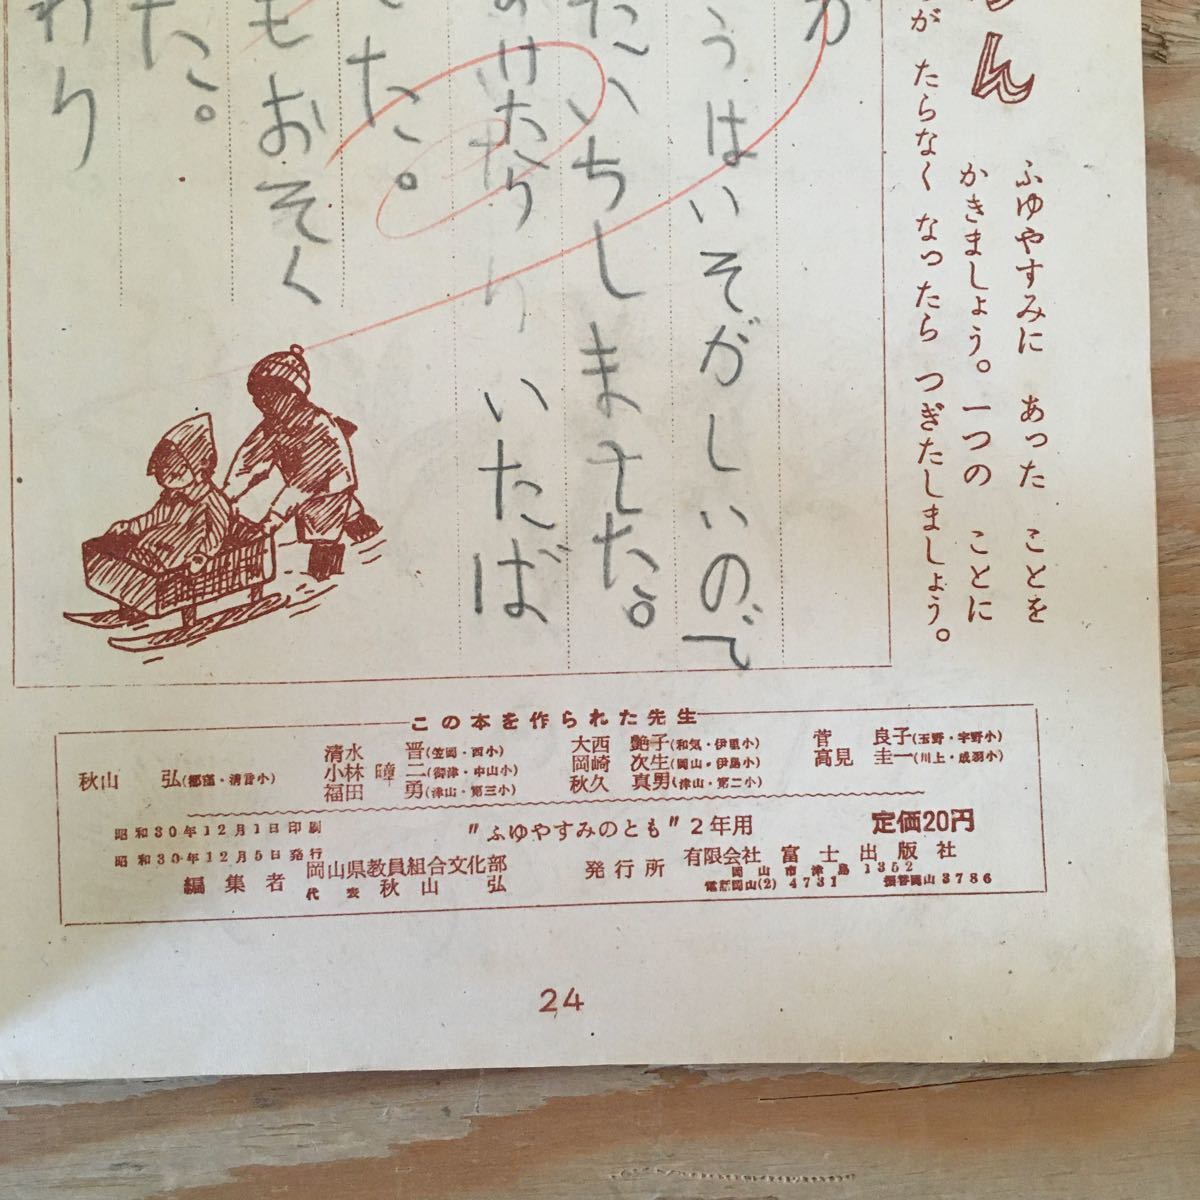 ん
ふゆやすみに あった ことを
かきましょう。一つの ことに
が たらなく なったら つぎたしましょう。
が
うはいそがしいので
たいちしました。
けたり いたば
た。
もおそく
た。
わり
この本を作られた先生
秋山 弘(都窪・清音小)
清水 晋(笠岡・西小)
小林 瞳二(御津・中山小)
福田 勇(津山・第三小)
大西 艶子(和気・伊里小)
岡崎 次生(岡山・伊島小)
秋久 真男(津山・第二小)
菅 良子(玉野・宇野小)
高見 圭一(川上・成羽小)
昭和30年12月1日印刷
昭和30年12月5日発行
"ふゆやすみのとも"2年用
定価20円
編集者 岡山県教員組合文化部
代表 秋山 弘
発行所 有限会社 富士出版社
岡山市津島 1352
電話岡山(2) 4731 振替岡山 3786
24